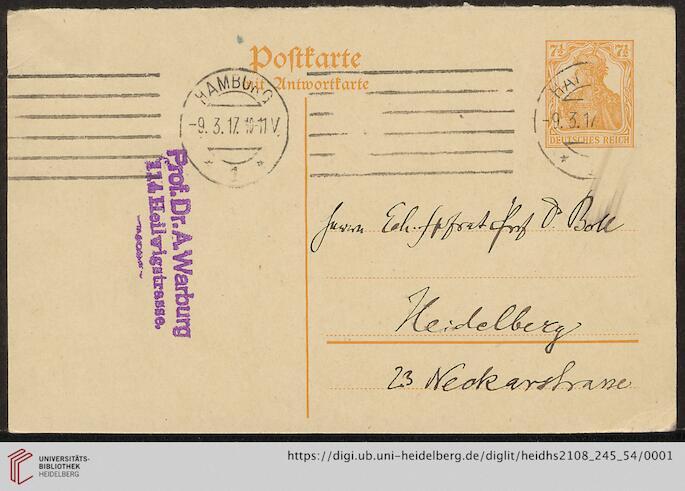 Postkarte
mit Antwortkarte
7½ 7½
DEUTSCHES REICH
HAMBURG
-9.3.17. 10-11 V.
* 1 *
HA
-9.3.17
*
Prof. Dr. A. Warburg
114 Heilwigstrasse.
Herrn Geh. Hofrat Prof Boll
Heidelberg
23 Neckarstrasse
UNIVERSITÄTS-
BIBLIOTHEK
HEIDELBERG
https://digi.ub.uni-heidelberg.de/diglit/heidhs2108_245_54/0001